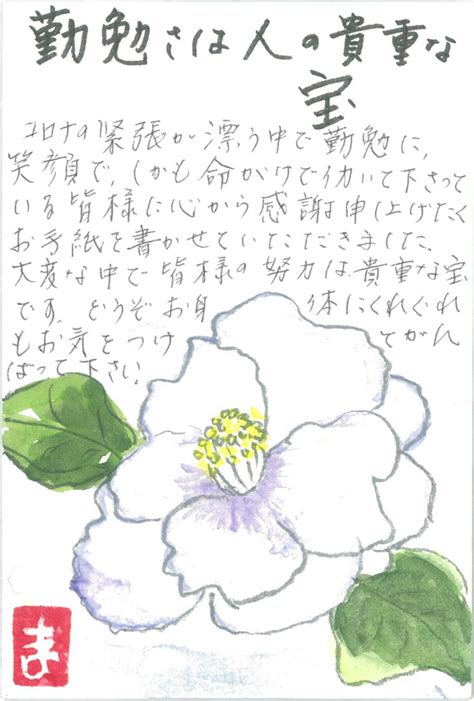 勤勉さは人の貴重な
宝
コロナの緊張が漂う中で勤勉に、
笑顔で、しかも命がけで仂いて下さって
いる皆様に心から感謝申し上げたく
お手紙を書かせていただきました。
大変な中で皆様の努力は貴重な宝
です。どうぞお身体にくれぐれ
もお気をつけてがん
ばって下さい。
ま